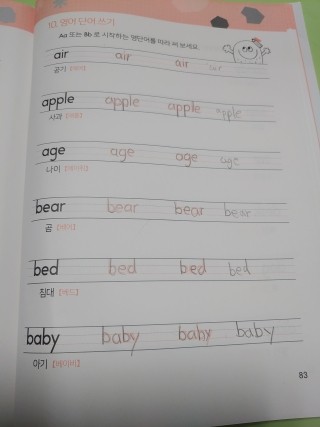 10. 영어 단어 쓰기
Aa 또는 Bb 로 시작하는 영단어를 따라 써 보세요.
air air air air
공기 [에어]
apple apple apple apple
사과 [애플]
age age age age
나이 [에이쥐]
bear bear bear bear
곰 [베어]
bed bed bed bed
침대 [베드]
baby baby baby baby
아기 [베이비]
83